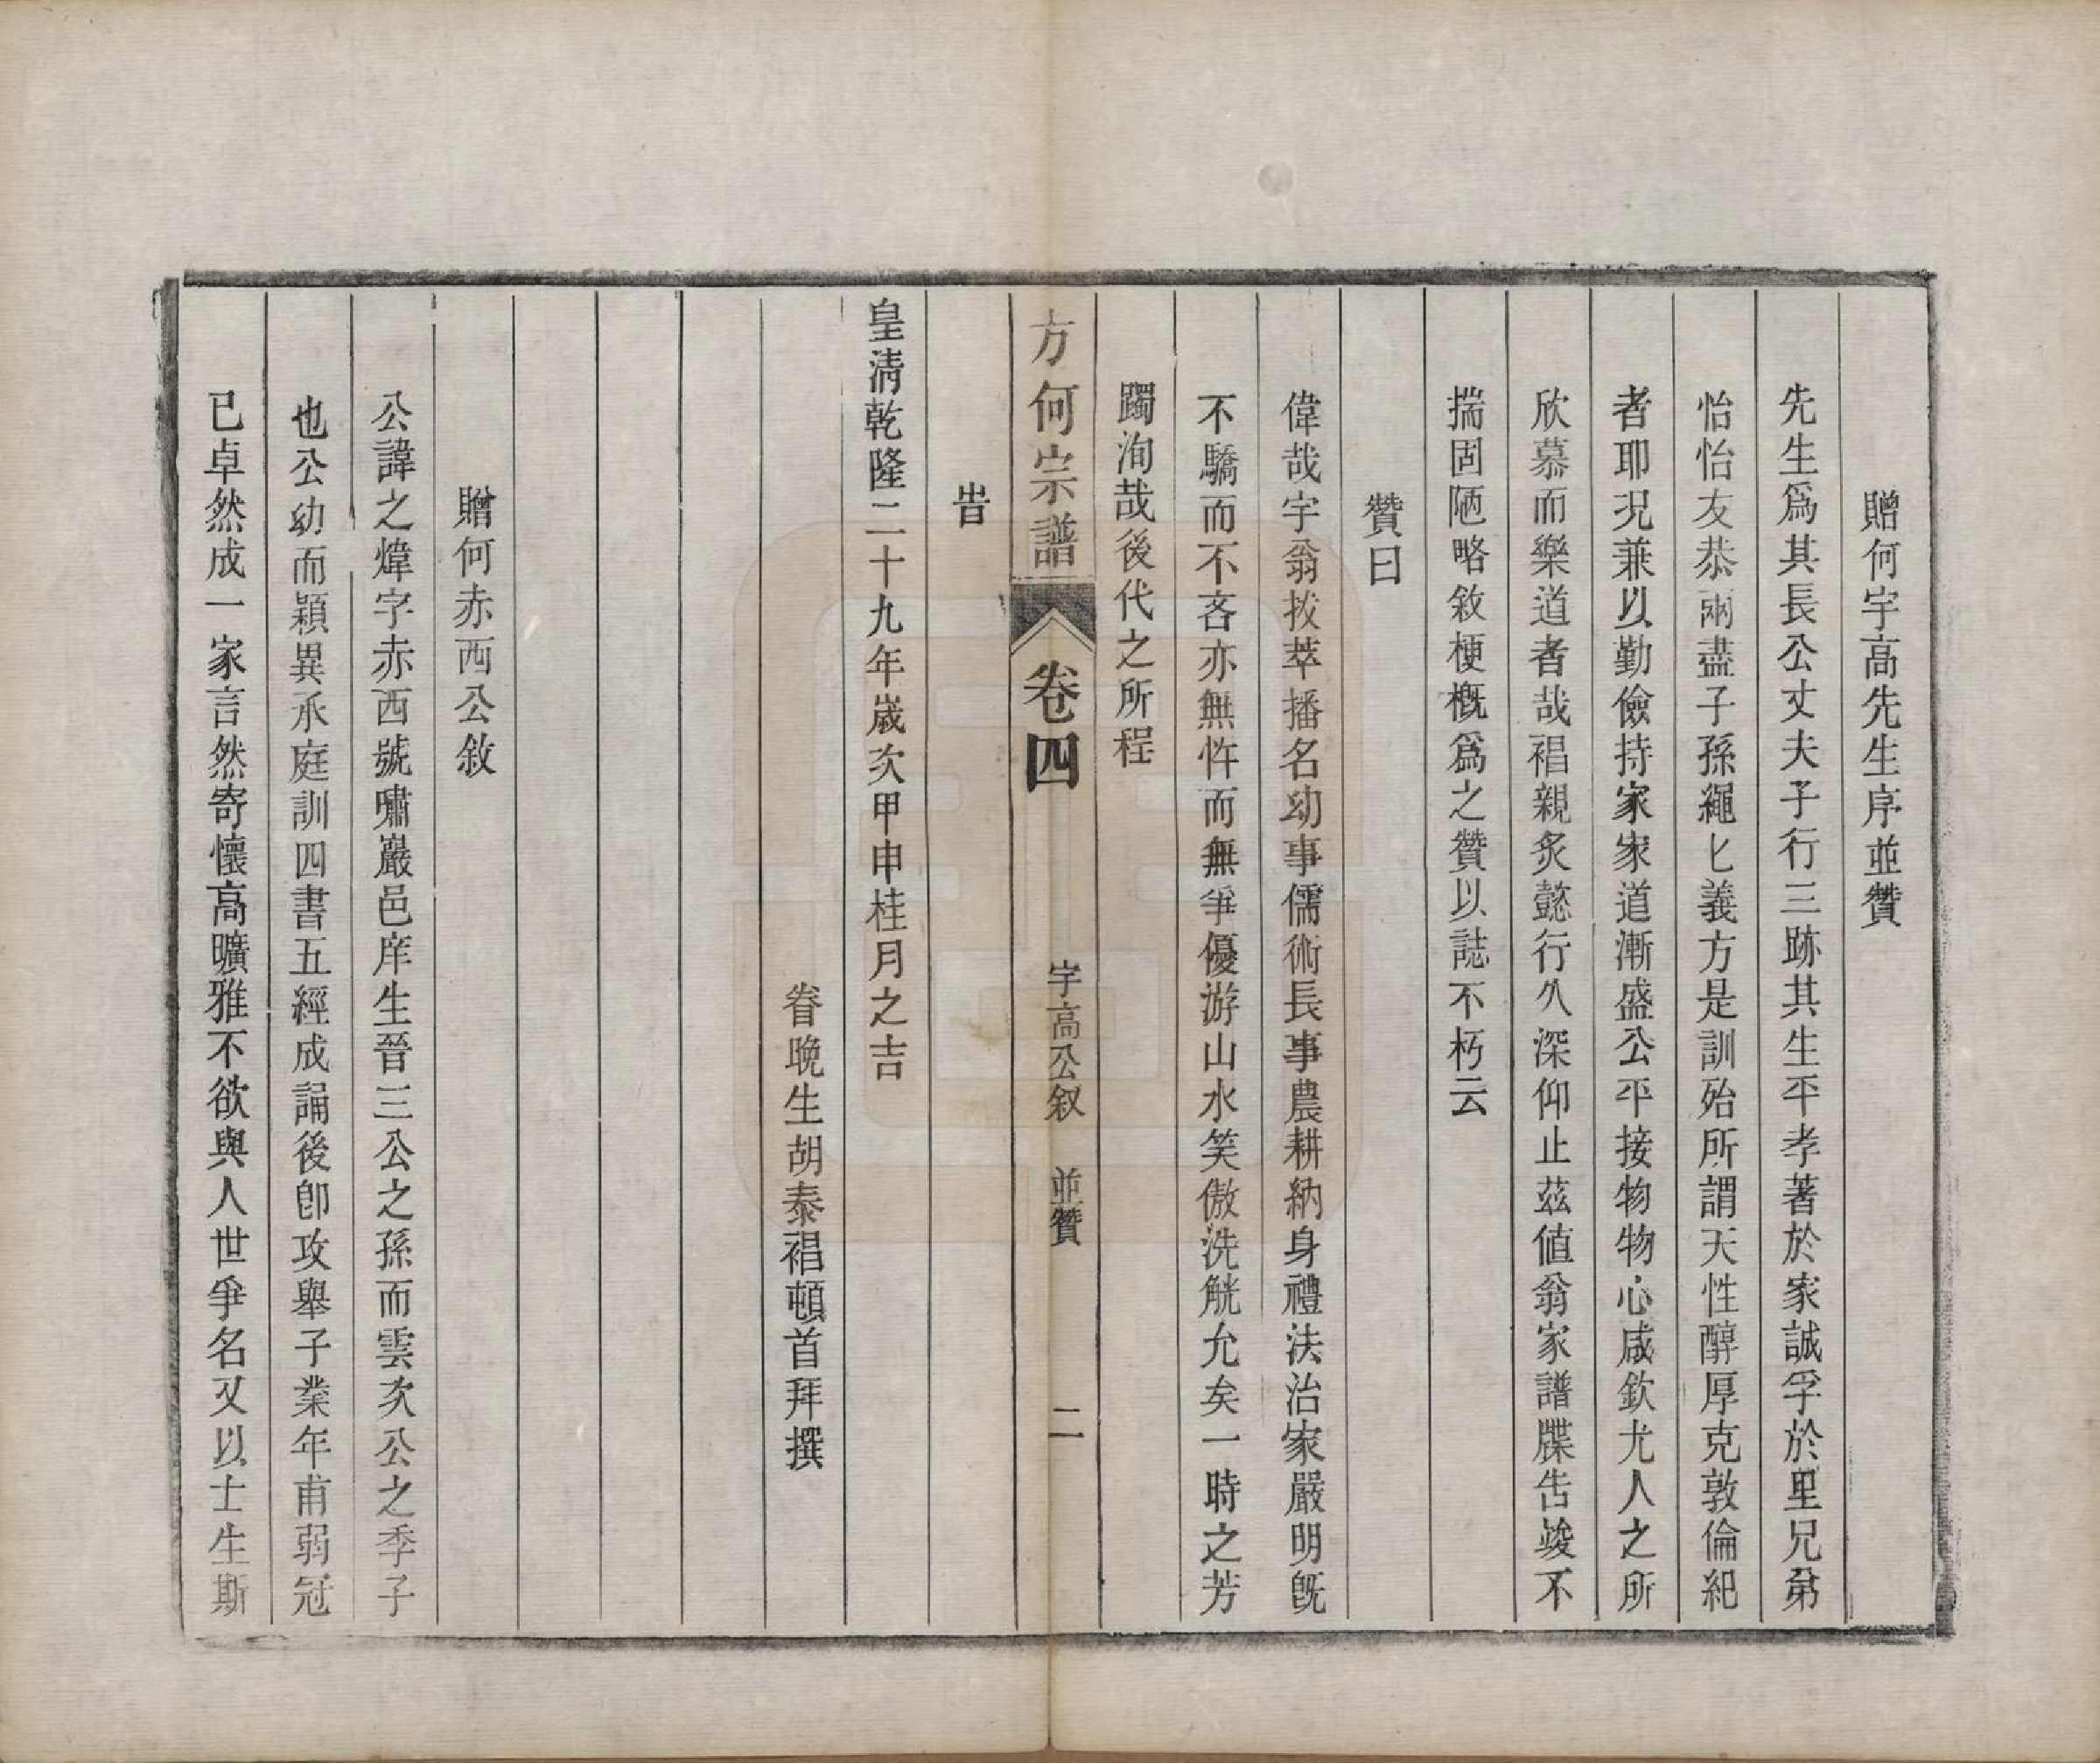 贈何宇高先生序並贊
先生爲其長公丈夫子行三跡其生平孝著於家誠孚於里兄弟
怡怡友恭兩盡子孫繩匕義方是訓殆所謂天性醇厚克敦倫紀
者耶況兼以勤儉持家家道漸盛公平接物物心咸欽尤人之所
欣慕而樂道者哉裮親炙懿行久深仰止茲値翁家譜牒告竣不
揣固陋略敘梗概爲之贊以誌不朽云
贊曰
偉哉宇翁拔萃播名幼事儒術長事農耕納身禮法治家嚴明旣
不驕而不吝亦無忤而無爭優游山水笑傲洗觥允矣一時之芳
躅洵哉後代之所程
方何宗譜 卷四 宇高公叙 並贊 二
旹
皇淸乾隆二十九年歲次甲申桂月之吉
眷晚生胡泰裮頓首拜撰
贈何赤西公敘
公諱之煒字赤西號嘯巖邑庠生晉三公之孫而雲次公之季子
也公幼而穎異承庭訓四書五經成誦後卽攻舉子業年甫弱冠
已卓然成一家言然寄懷高曠雅不欲與人世爭名又以士生斯